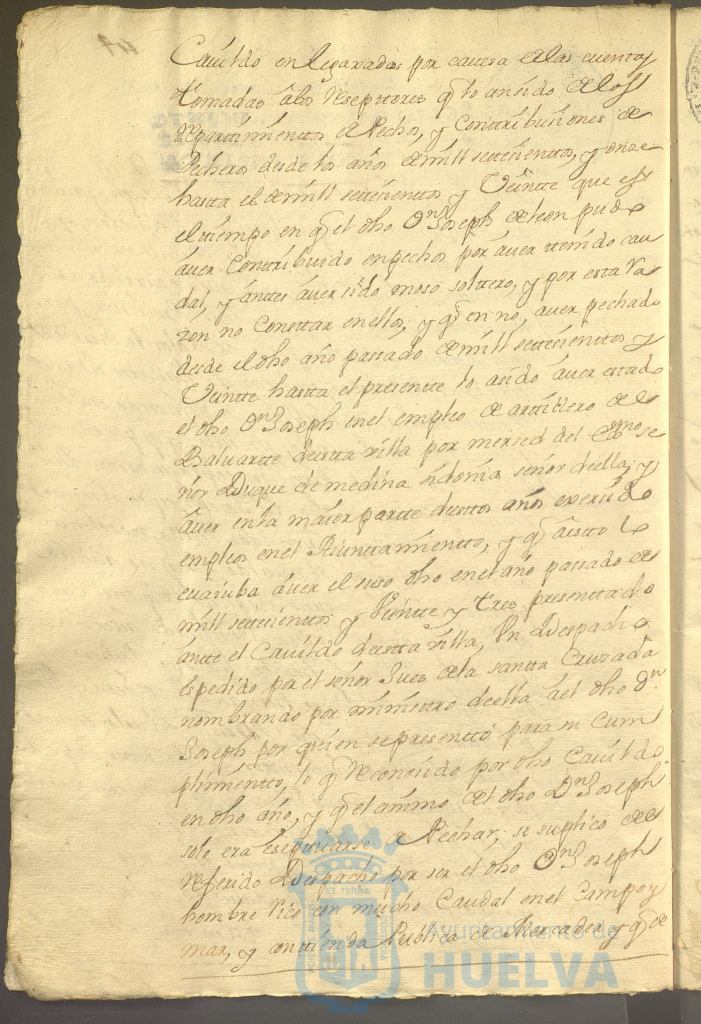 Cavildo en legaxadas por causa de las cuentas
tomadas a los Reseptores q lo an sido de los
Repartimientos de Pechos, y Contribusiones de
Pecheros desde los años de mill settesienttos, y onze
hasta el de mill settesienttos y Veintte que es
el tiempo en q el dho Dn Joseph de leon pudo
aver Contribuido en pechos por aver ttenido cau
dal, y anttes aver sido moso solttero, y por esta Ra
zon no Consttar en ellos, y q en no, aver pechado
desde el dho año passado de mill settesienttos y
Veintte hasta el presentte lo a sido aver estado
el dho Dn Joseph en el empleo de arttillero de el
Baluartte de estta villa por mersed del Exmo se
ñor Duque de medina sidonia señor de ella; y
aver en la maior partte de esttos años exersido
empleos en el Aiunttamientto, y q a esto le
coaiuba aver el suso dho en el año passado de
mill settesienttos y Veintte y tres presenttado
antte el Cavildo de estta villa, Un Despacho
espedido por el señor Jues de la santta Cruzada
nombrando por ministro de ella a el dho Dn
Joseph por quien se presenttó para su Cum
plimientto, lo q Reconosido por dho Cavildo
en dho año, y q el animo de el dho Dn Joseph
solo era esepttuarse de Pechar, se suplicó de el
Referido Despacho por ser el dho Dn Joseph
hombre Rico con mucho Caudal en el Campo y
mar, y con ttienda Publica de Mercader y q de
Ayuntamiento de
HUELVA